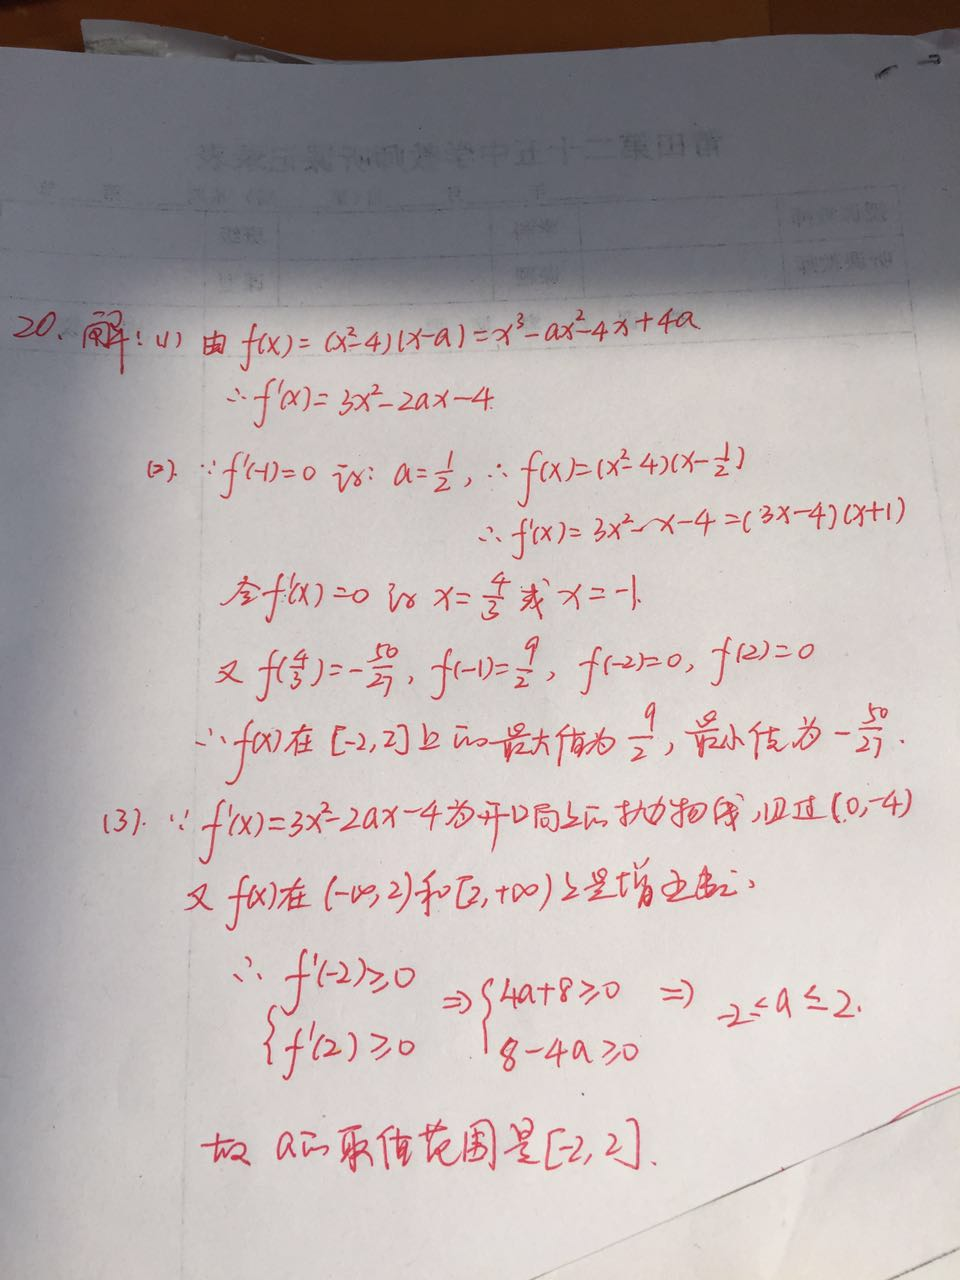 20. 解:(1) 由 f(x)=(x²-4)(x-a)=x³-ax²-4x+4a
∴f'(x)=3x²-2ax-4
(2). ∵f'(-1)=0 得: a=1/2, ∴f(x)=(x²-4)(x-1/2)
∴f'(x)=3x²-x-4=(3x-4)(x+1)
令f'(x)=0 得 x=4/3 或 x=-1.
又 f(4/3)=-50/27, f(-1)=9/2, f(-2)=0, f(2)=0
∴f(x)在[-2,2]上的最大值为 9/2, 最小值为 -50/27.
(3). ∵f'(x)=3x²-2ax-4为开口向上的抛物线,且过(0,-4)
又 f(x)在(-∞,2)和[2,+∞)上是增
∴ { f'(-2)≥0 ⇒ { 4a+8≥0 ⇒ -2≤a≤2.
f'(2)≥0 8-4a≥0
故 a的取值范围是[-2,2].